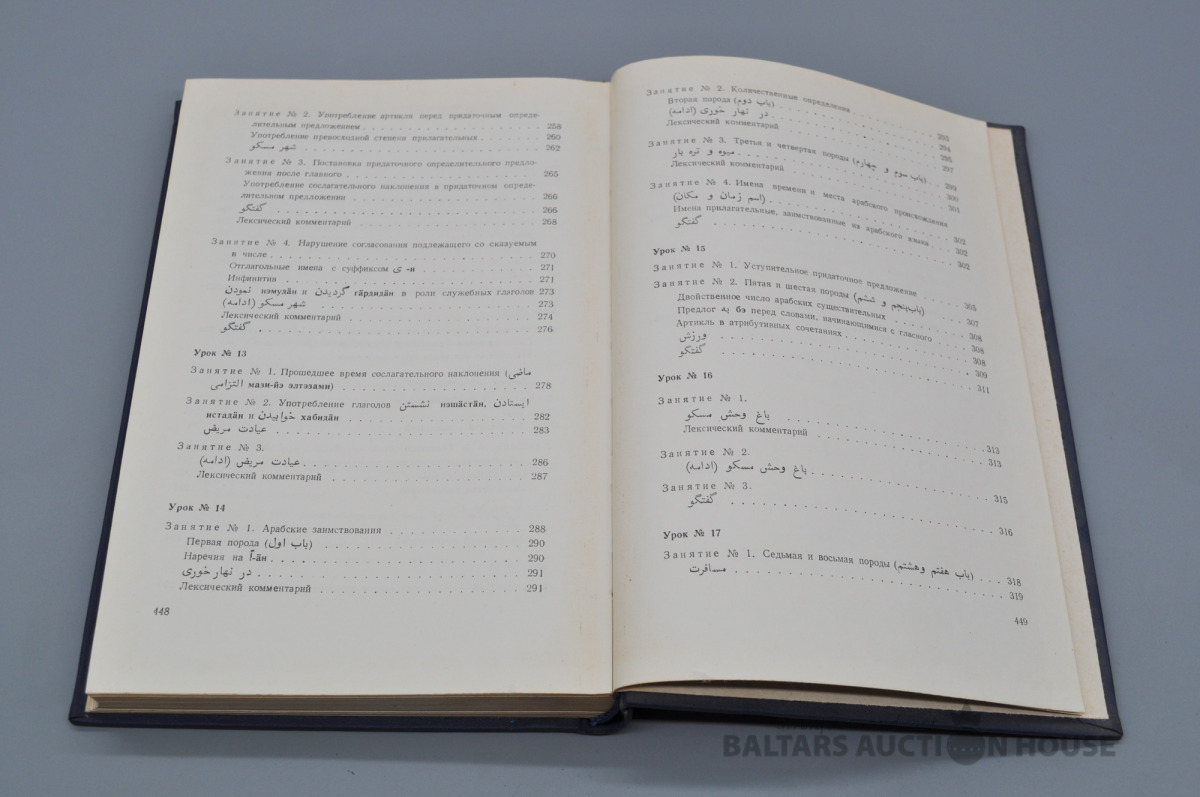 Занятие № 2. Употребление артикля перед придаточным опреде-
лительным предложением . . . 258
Употребление превосходной степени прилагательных . . . 260
شهر مسکو . . . 262
Занятие № 3. Постановка придаточного определительного предло-
жения после главного . . . 265
Употребление сослагательного наклонения в придаточном опреде-
лительном предложении . . . 266
گفتگو . . . 266
Лексический комментарий . . . 268
Занятие № 4. Нарушение согласования подлежащего со сказуемым
в числе . . . 270
Отглагольные имена с суффиксом ی -и . . . 271
Инфинитив . . . 271
نمودن нэмудäн и گردیدن гäрдидäн в роли служебных глаголов 273
شهر مسکو (ادامه) . . . 273
Лексический комментарий . . . 274
گفتگو . . . 276
Урок № 13
Занятие № 1. Прошедшее время сослагательного наклонения (ماضی
التزامی мази-йэ элтэзами) . . . 278
Занятие № 2. Употребление глаголов نشستن нэшäстäн, ایستادن
истадäн и خوابیدن хабидäн . . . 282
عیادت مریض . . . 283
Занятие № 3.
عیادت مریض (ادامه) . . . 286
Лексический комментарий . . . 287
Урок № 14
Занятие № 1. Арабские заимствования . . . 288
Первая порода (باب اول) . . . 290
Наречия на اً-äн . . . 290
در نهار خوری . . . 291
Лексический комментарий . . . 291
448
Занятие № 2. Количественные определения . . . 293
Вторая порода (باب دوم) . . . 294
در نهار خوری (ادامه) . . . 295
Лексический комментарий . . . 297
Занятие № 3. Третья и четвертая породы (باب سوم و چهارم) . . . 299
میوه و تره بار . . . 300
Лексический комментарий . . . 301
Занятие № 4. Имена времени и места арабского происхождения
(اسم زمان و مکان) . . . 302
Имена прилагательные, заимствованные из арабского языка . . . 302
گفتگو . . . 302
Урок № 15
Занятие № 1. Уступительное придаточное предложение . . . 305
Занятие № 2. Пятая и шестая породы (باب پنجم و ششم) . . . 307
Двойственное число арабских существительных . . . 308
Предлог به бэ перед словами, начинающимися с гласного . . . 308
Артикль в атрибутивных сочетаниях . . . 308
ورزش . . . 309
گفتگو . . . 311
Урок № 16
Занятие № 1.
باغ وحش مسکو . . . 313
Лексический комментарий . . . 313
Занятие № 2.
باغ وحش مسکو (ادامه) . . . 315
Занятие № 3.
گفتگو . . . 316
Урок № 17
Занятие № 1. Седьмая и восьмая породы (باب هفتم وهشتم) . . . 318
مسافرت . . . 319
449
BALTARS AUCTION HOUSE